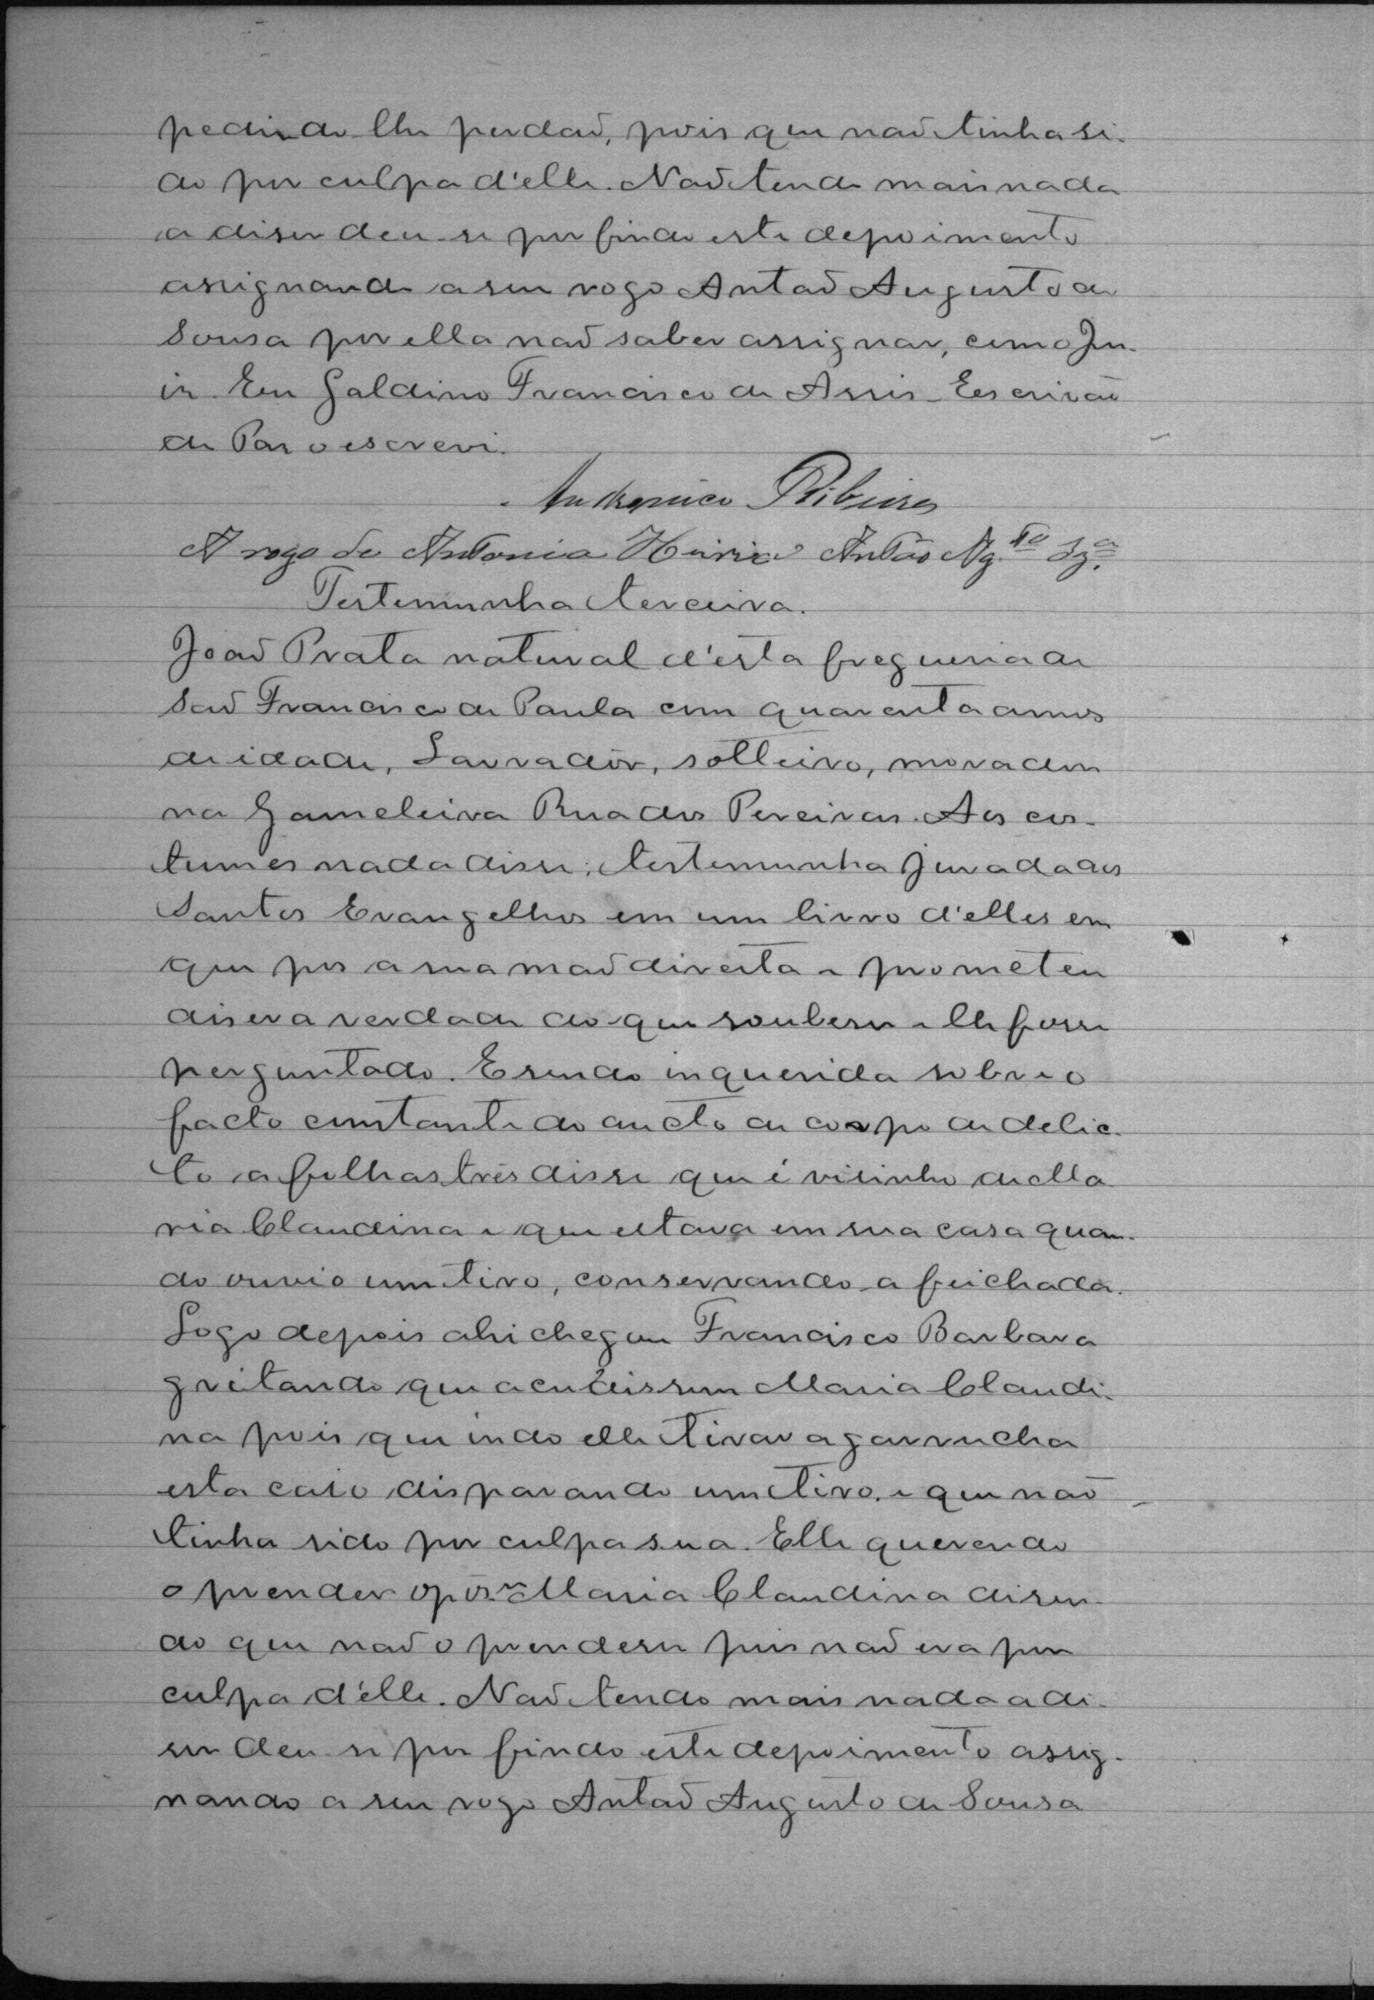 pedindo lhe perdaõ, pois que naõ tinha si-
do por culpa d'elle. Naõ tendo mais nada
a diser deu-se por findo este depoimento
assignando a seu rogo Antaõ Augusto de
Sousa por ella naõ saber assignar, com o Ju-
iz. Eu Galdino Francisco de Assis Escrivão
de Paz o escrevi.
Andronico Ribeiro
A rogo de Antonia Maria Antão Ag.to Sz.a
Testemunha terceira.
Joaõ Prata natural d'esta freguesia de
Saõ Francisco de Paula com quarenta annos
de idade, Lavradôr, solteiro, morador
na Gameleira Rua dos Pereiras. Aos cos-
tumes nada disse; testemunha jurada aos
Santos Evangelhos em um livro d'elles em
que pos a sua maõ direita e prometeu
diser a verdade do que soubesse e lhe fosse
perguntado. E sendo inquerida sobre o
facto constante do aucto de corpo de delic-
to a folhas três disse que é visinho de Ma-
ria Claudina e que estava em sua casa quan-
do ouvio um tiro, conservando-a feichada.
Logo depois ahi chegou Francisco Barbara
gritando que acudissem Maria Claudi-
na pois que indo elle tirar a garrucha
esta caio disparando um tiro. e que naõ
tinha sido por culpa sua. Elle querendo
o prender opôs-se Maria Claudina disen-
do que naõ o prendesse pois naõ era por
culpa d'elle. Naõ tendo mais nada a di-
ser deu-se por findo este depoimento assig-
nando a seu rogo Antaõ Augusto de Sousa